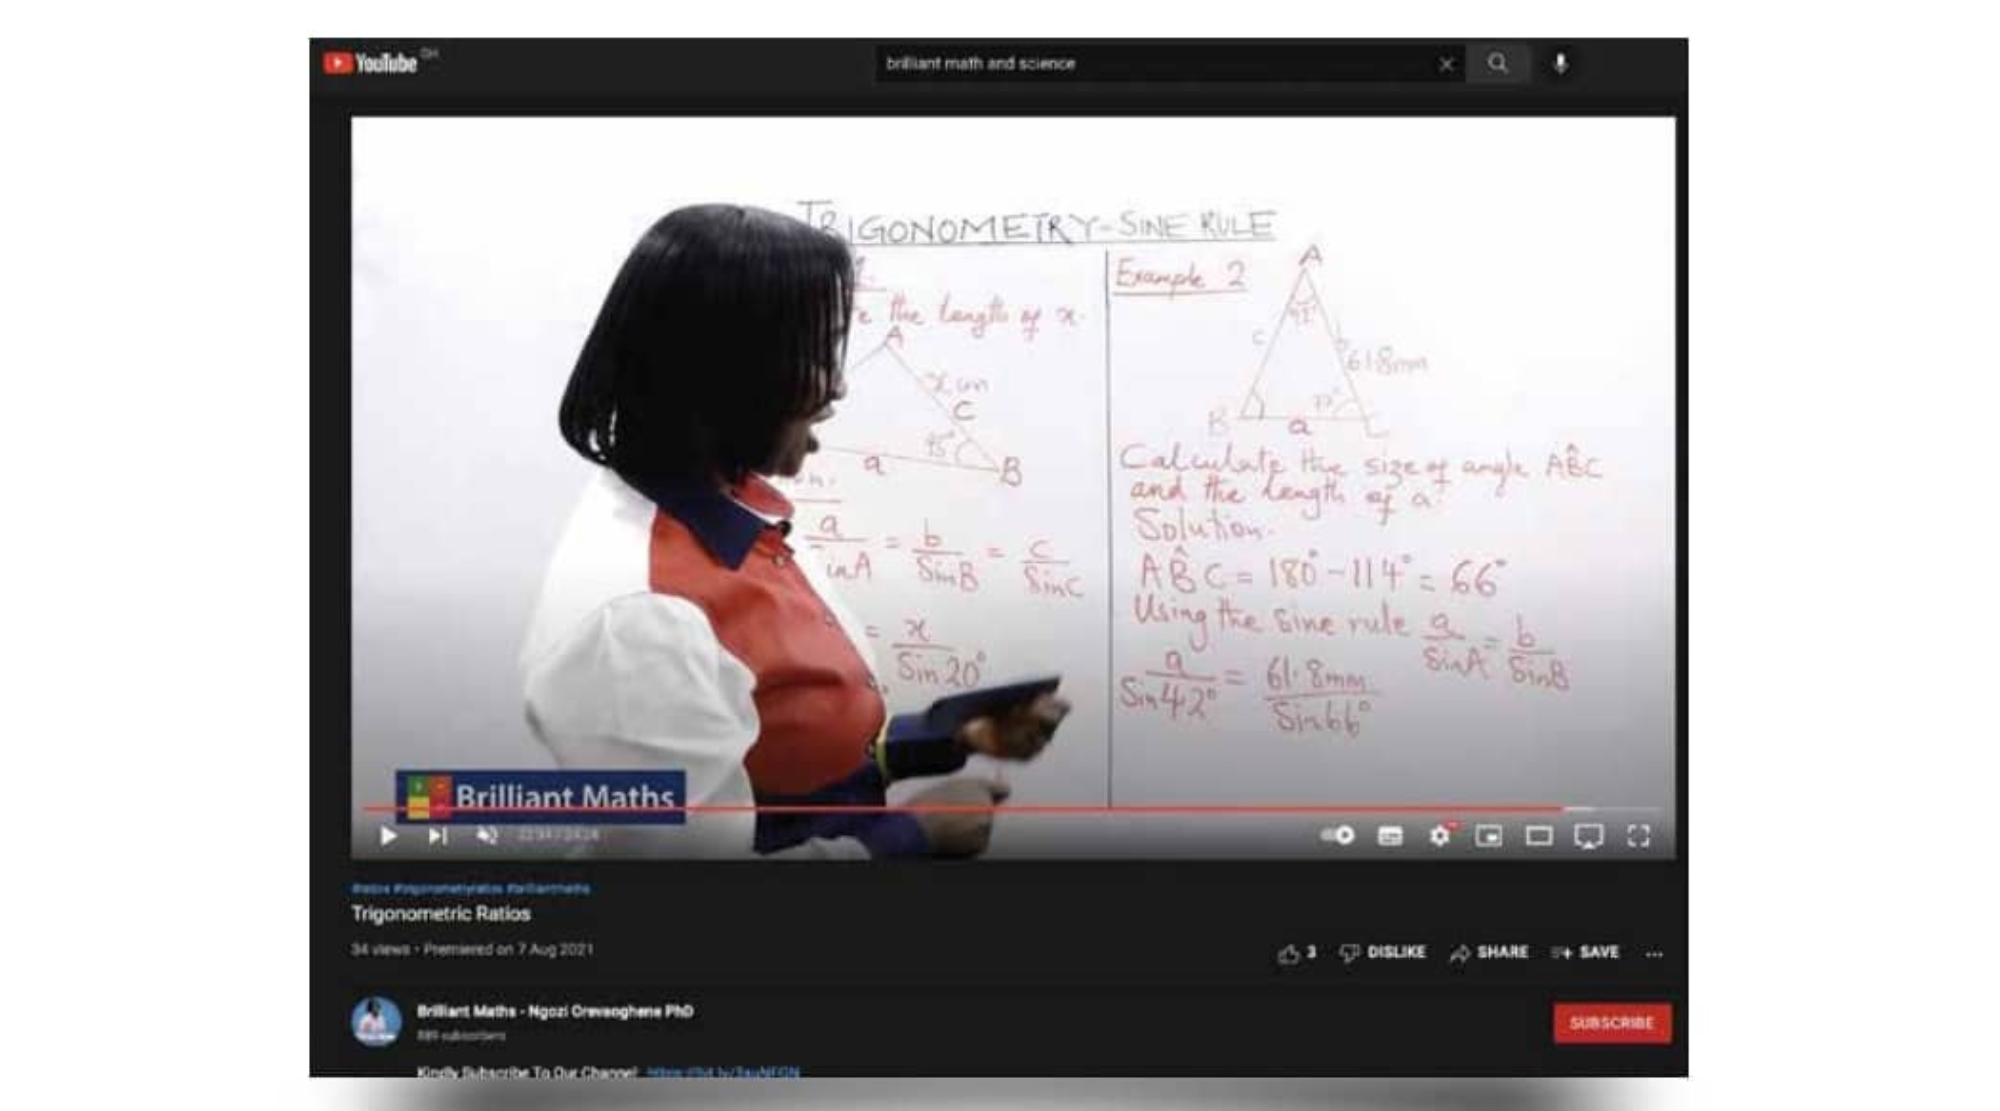 YouTube GH
brilliant math and science
TRIGONOMETRY - SINE RULE
the length of x.
A
x cm
C
a
B
a = b = c
inA SinB SinC
= x
Sin 20°
Example 2
A
42°
c
b
61.8mm
B
a
C
Calculate the size of angle AB̂C
and the length of a.
Solution.
AB̂C = 180° - 114° = 66°
Using the Sine rule a = b
SinA SinB
a = 61.8mm
Sin42° Sin66°
Brilliant Maths
Trigonometric Ratios
34 views • Premiered on 7 Aug 2021
3 DISLIKE SHARE SAVE
Brilliant Maths - Ngozi Orevaoghene PhD
subscribers
SUBSCRIBE
Kindly Subscribe To Our Channel: